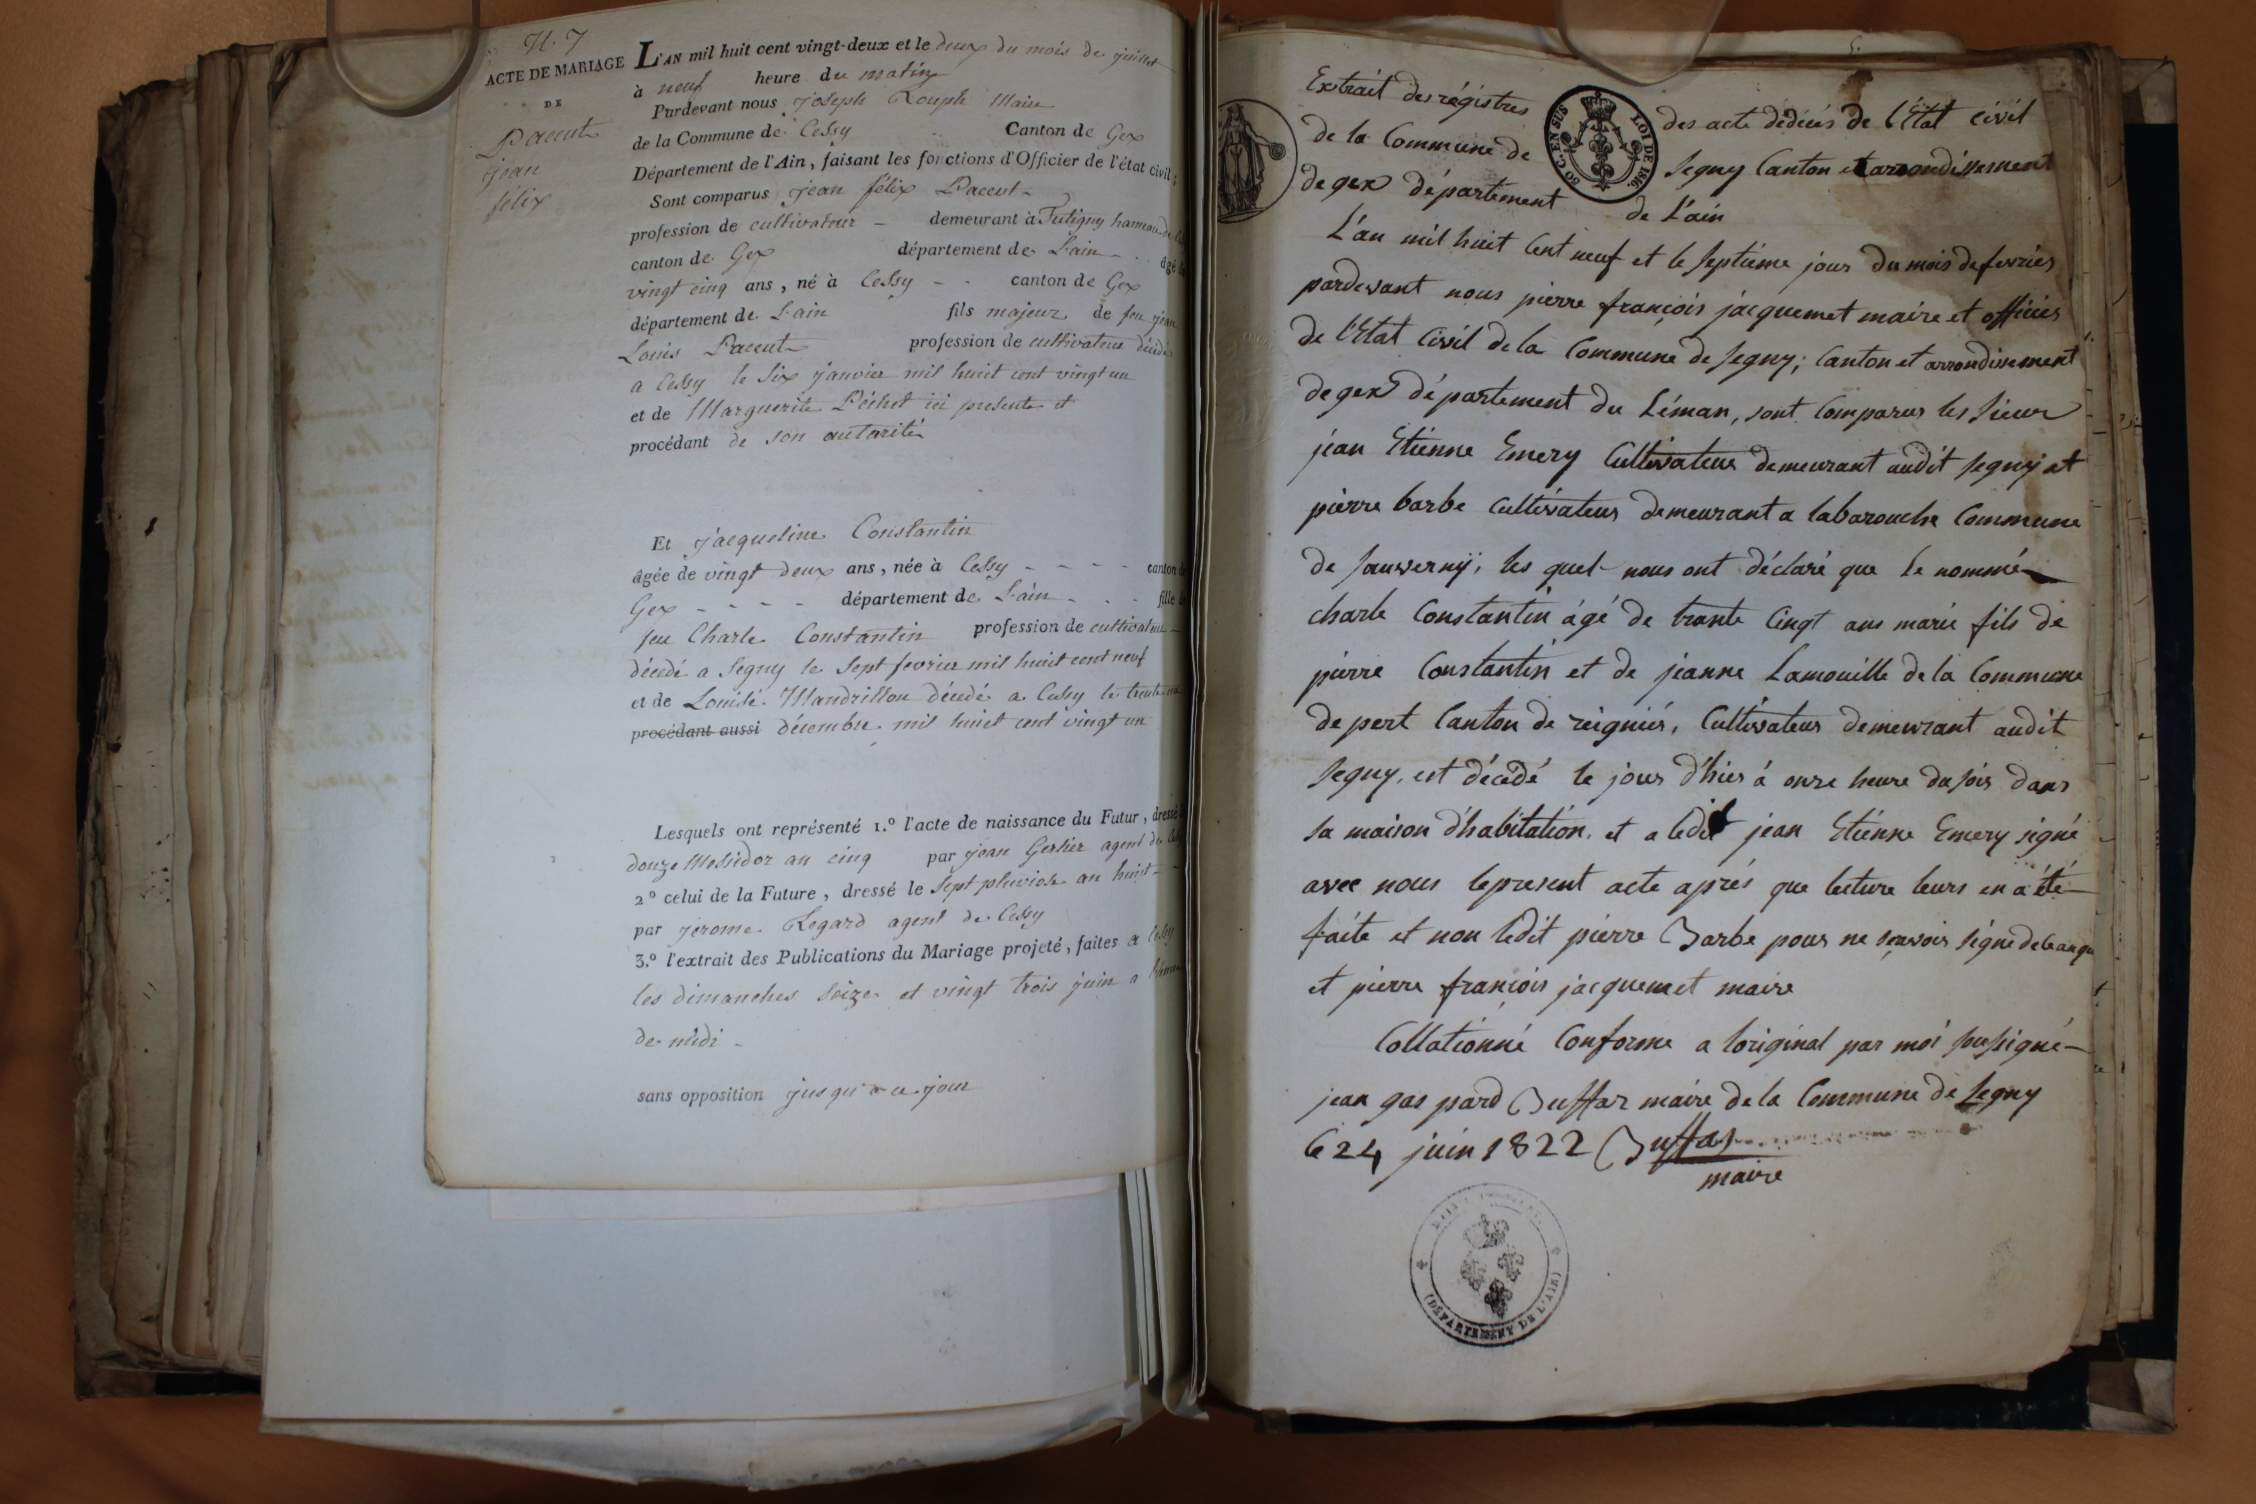 N. 7
ACTE DE MARIAGE
DE
Paccut
jean
félix
L'AN mil huit cent vingt-deux et le deux du mois de juillet
à neuf heure du matin
Pardevant nous joseph Rouph Maire
de la Commune de Cessy Canton de Gex
Département de l'Ain, faisant les fonctions d'Officier de l'état civil;
Sont comparus jean félix Paccut
profession de cultivateur demeurant à Tutigny hameau de
canton de Gex département de L'ain âgé de
vingt cinq ans, né à Cessy canton de Gex
département de L'ain fils majeur de feu jean
Louis Paccut profession de cultivateur décédé
a Cessy le six janvier mil huit cent vingt un
et de Marguerite Péchet ici presente et
procédant de son autorité
Et jacqueline Constantin
âgée de vingt deux ans, née à Cessy canton de
Gex département de L'ain fille de
feu Charle Constantin profession de cultivateur
décédé a Segny le sept fevrier mil huit cent neuf
et de Louise Mandrillon décédé a Cessy le trente
procédant aussi décembre mil huit cent vingt un
Lesquels ont représenté 1.º l'acte de naissance du Futur, dressé
douze Messidor an cinq par jean Gerlier agent de
2º celui de la Future, dressé le sept pluviose an huit
par jérome Regard agent de Cessy
3.º l'extrait des Publications du Mariage projeté, faites a Cessy
les dimanches seize et vingt trois juin a
de midi
sans opposition jusqu'a ce jour
Extrait des régistres des acte dédécés de l'État civil
de la Commune de Segny Canton et arrondissement
de gex département de L'ain
50 C. EN SUS
LOI DE 1816.
L'an mil huit Cent neuf et le septieme jour du mois de fevrier
pardevant nous pierre françois jacquemet maire et officier
de l'État Civil de la Commune de Segny; Canton et arrondissement
de gex département du Léman, sont Comparus les sieur
jean Etienne Emery Cultivateur demeurant audit segny et
pierre barbe Cultivateur demeurant a labarouche Commune
de sauverny, les quel nous ont déclaré que le nommé
charle Constantin âgé de trante Cinqt ans marié fils de
pierre Constantin et de jeanne Lamouille de la Commune
de pert Canton de reigniér, Cultivateur demeurant audit
Segny, est décédé le jour d'hier á onze heure du soir dans
sa maison d'habitation, et a ledit jean Etienne Emery signé
avec nous lepresent acte aprés que lecture leurs en a été
faite et non ledit pierre Barbe pour ne sçavoir signe de
et pierre françois jacquemet maire
Collationné Conforme a loriginal par moi sousigné
jean gaspard Buffar maire de la Commune de Segny
le 24 juin 1822 Buffar
maire
(DÉPARTEMENT DE L'AIN)